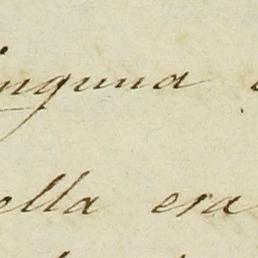 ninguna
ella era